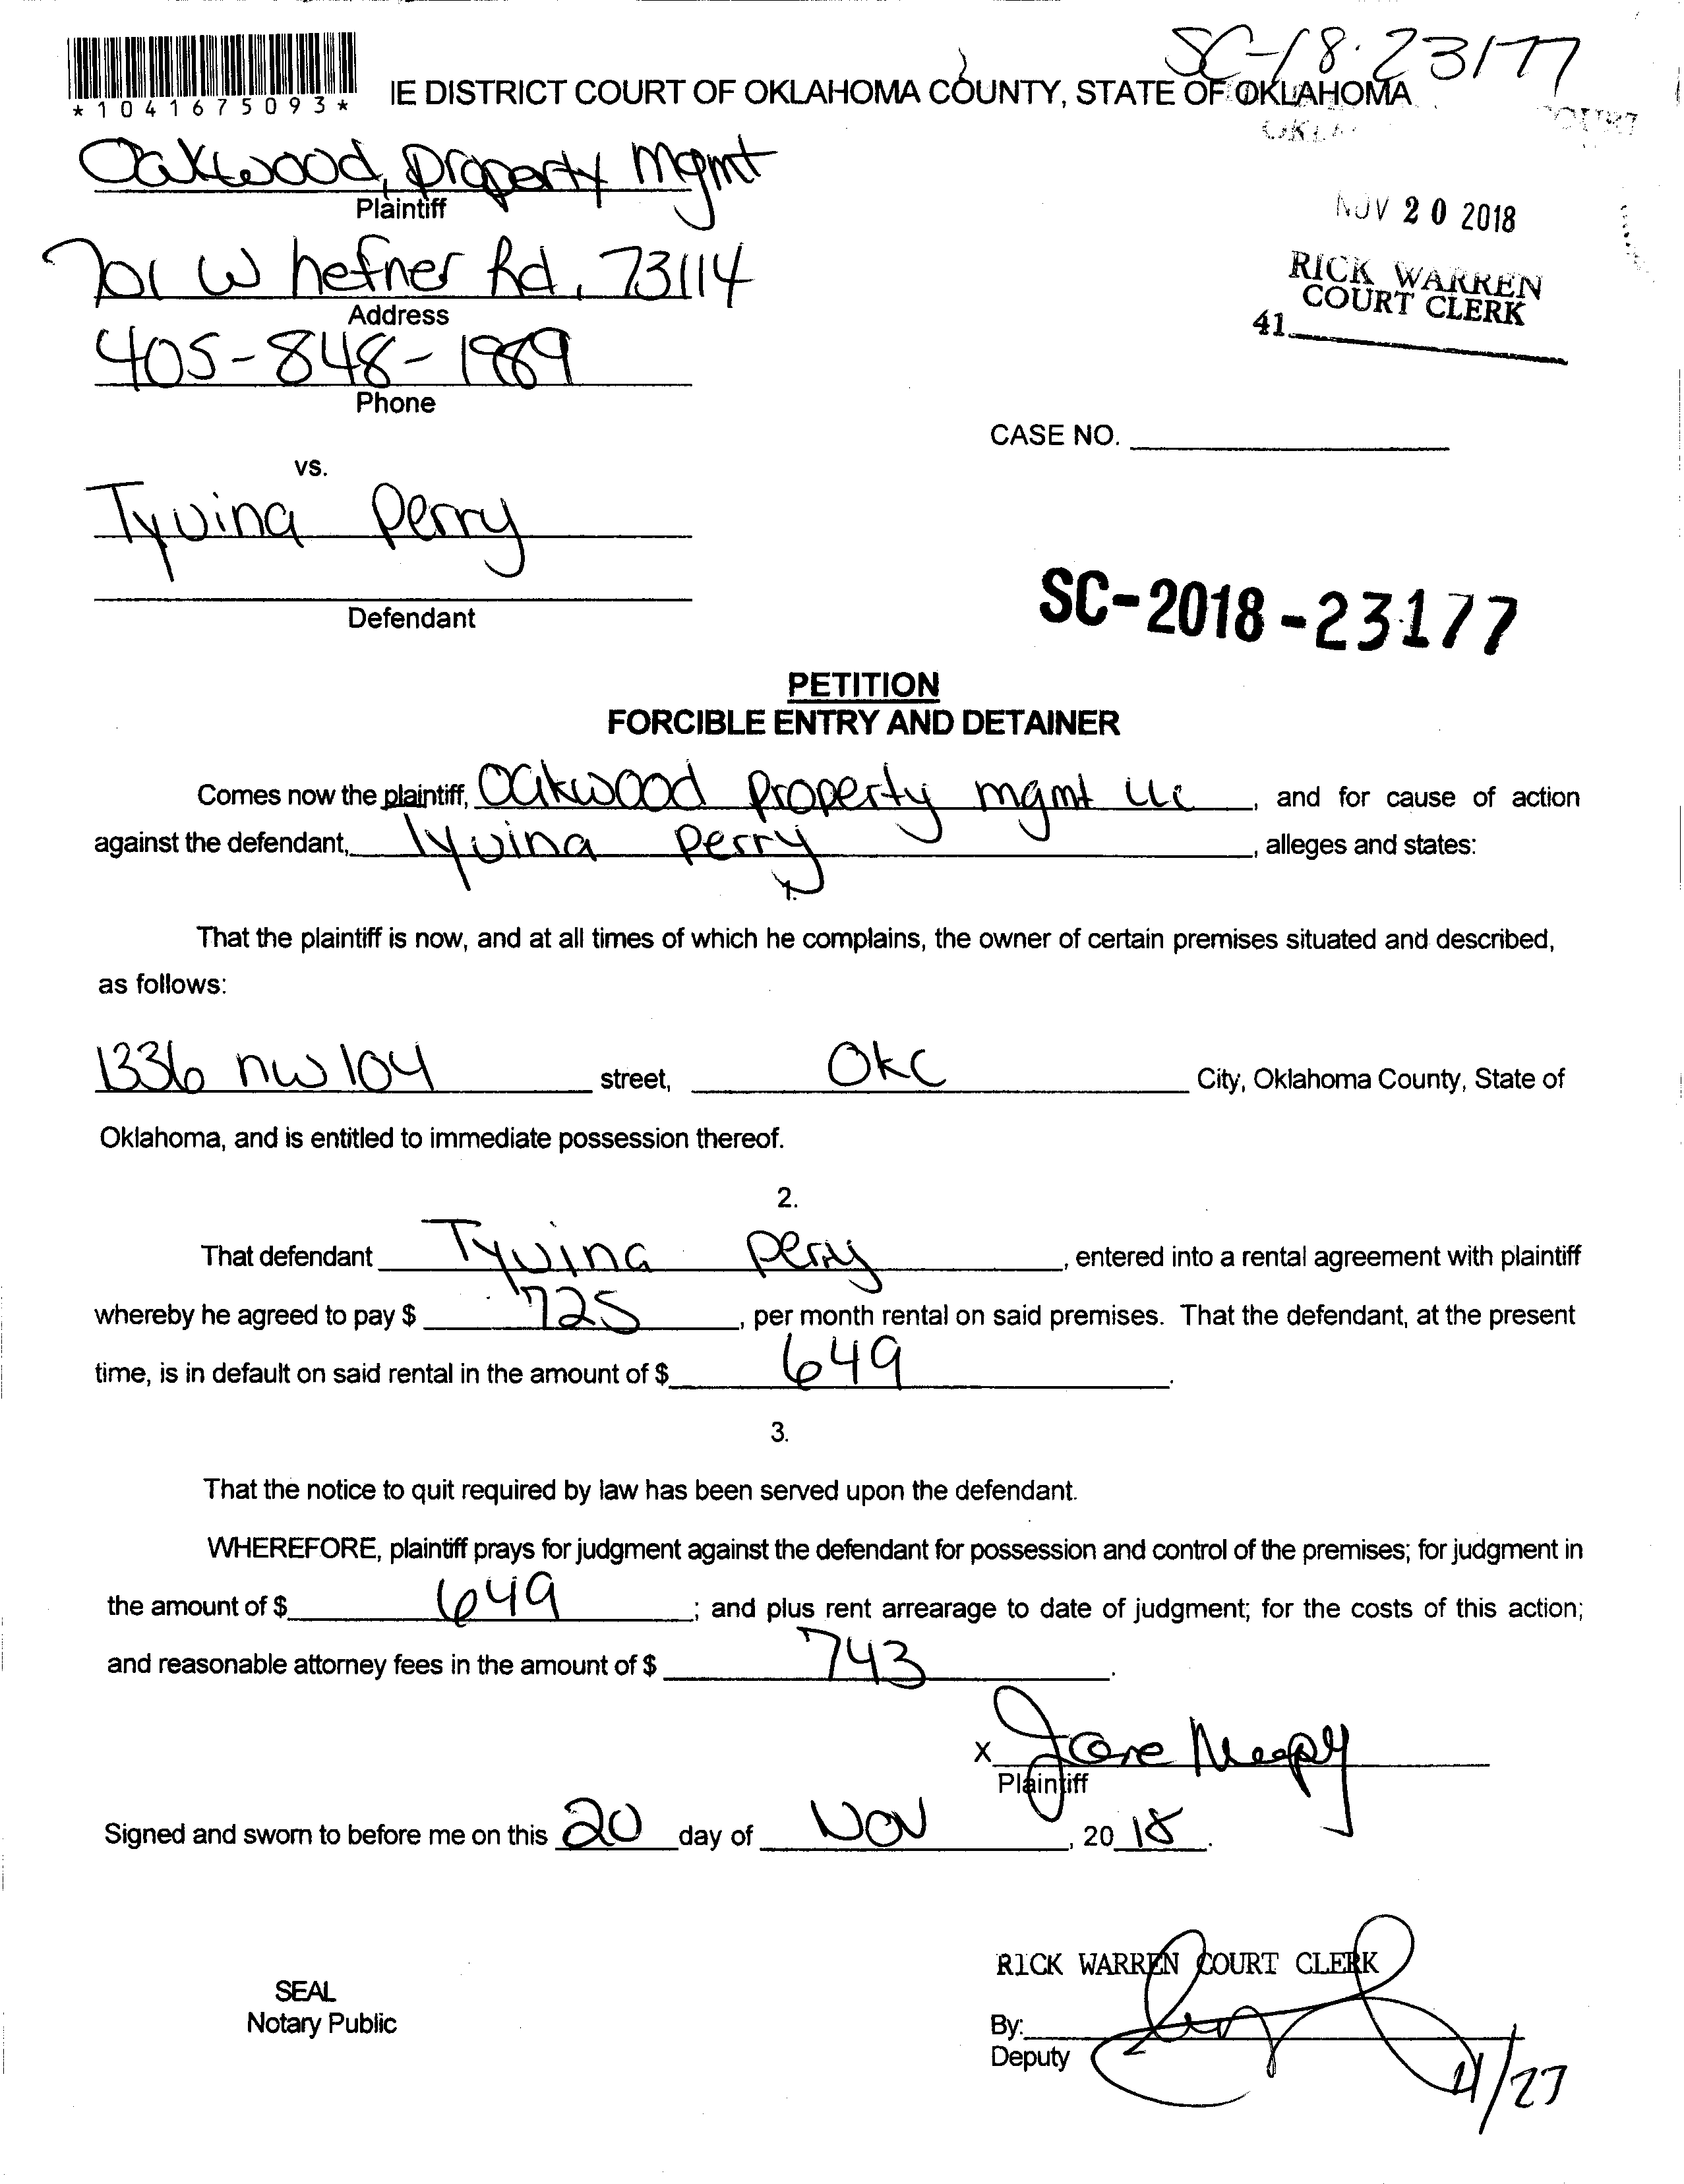 SC-18-23177
*1041675093*
IE DISTRICT COURT OF OKLAHOMA COUNTY, STATE OF OKLAHOMA
COURT
Oakwood, property Mgmt
Plaintiff
NOV 20 2018
701 W hefner Rd, 73114
RICK WARREN
COURT CLERK
Address
41
405-848-1989
Phone
CASE NO.
vs.
Tyvina Perry
Defendant
SC-2018-23177
PETITION
FORCIBLE ENTRY AND DETAINER
Comes now the plaintiff, Oakwood property mgmt LLC, and for cause of action
against the defendant, Tyvina Perry, alleges and states:
1.
That the plaintiff is now, and at all times of which he complains, the owner of certain premises situated and described,
as follows:
1336 nw 104 street, OKC City, Oklahoma County, State of
Oklahoma, and is entitled to immediate possession thereof.
2.
That defendant Tyvina Perry, entered into a rental agreement with plaintiff
whereby he agreed to pay $ 725, per month rental on said premises. That the defendant, at the present
time, is in default on said rental in the amount of $ 649.
3.
That the notice to quit required by law has been served upon the defendant.
WHEREFORE, plaintiff prays for judgment against the defendant for possession and control of the premises; for judgment in
the amount of $ 649; and plus rent arrearage to date of judgment; for the costs of this action;
and reasonable attorney fees in the amount of $ 743.
X
Plaintiff
Signed and sworn to before me on this 20 day of Nov, 20 18.
RICK WARREN COURT CLERK
SEAL
Notary Public
By:
Deputy
11/27